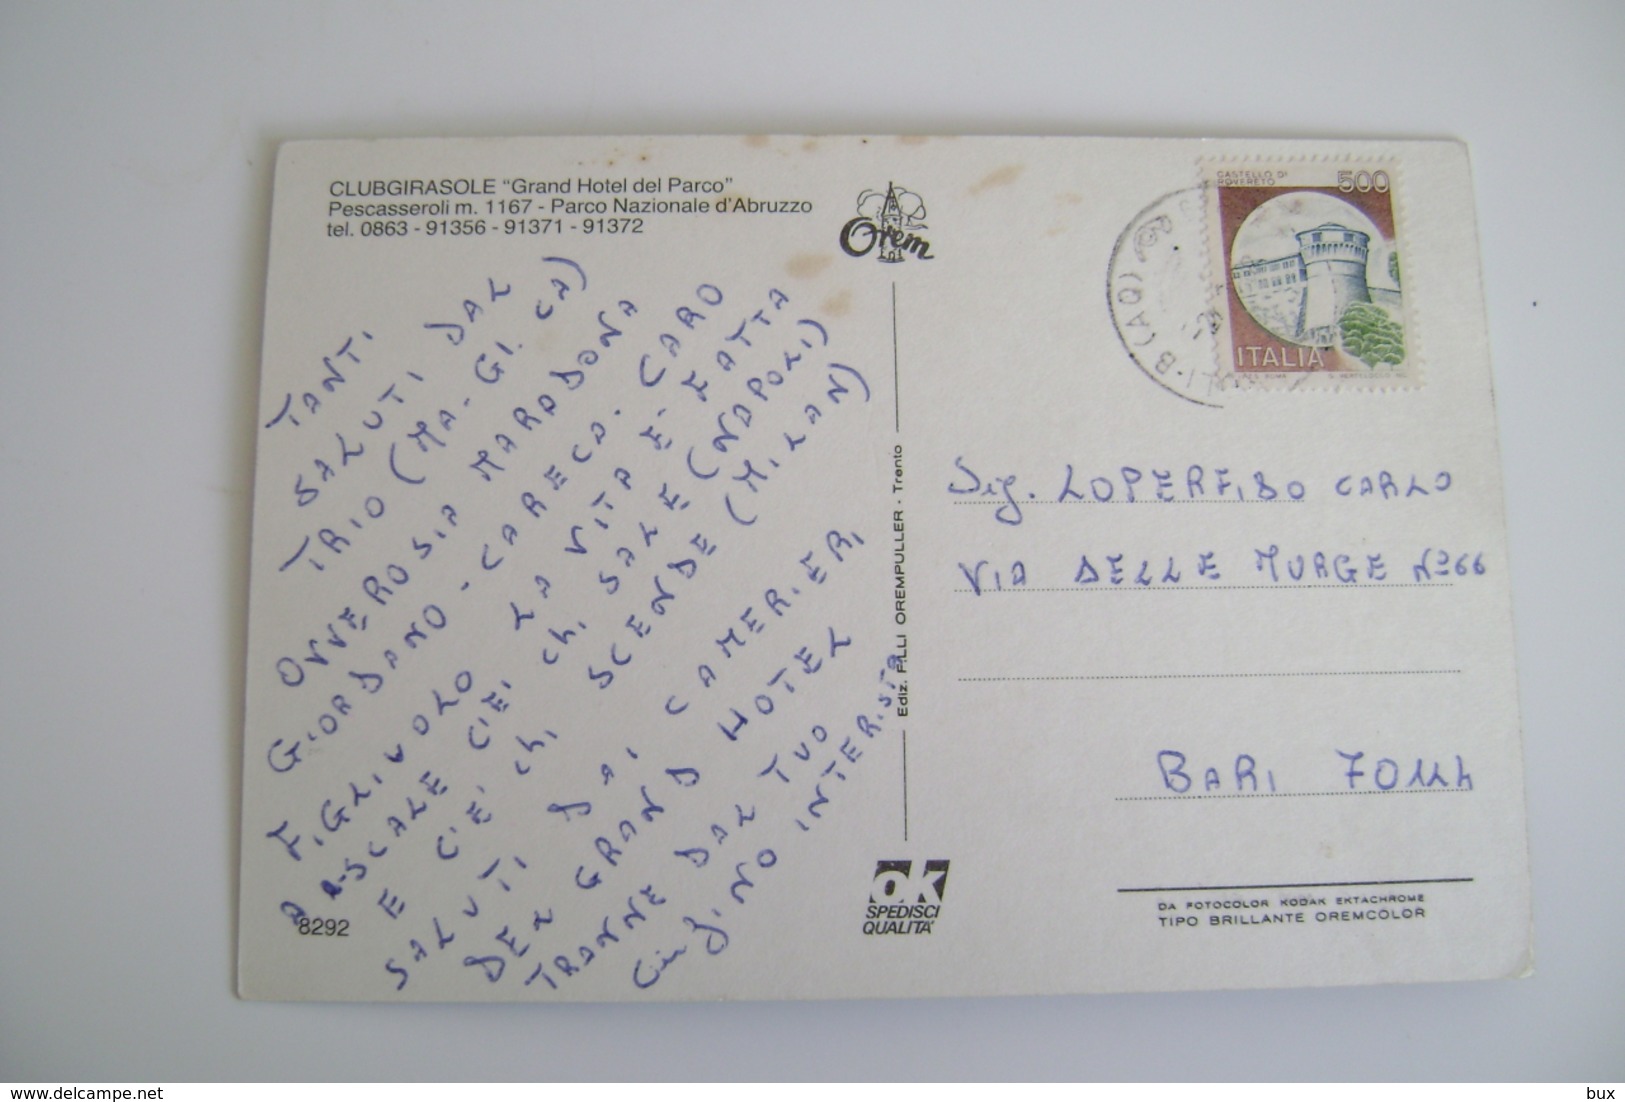 CLUBGIRASOLE "Grand Hotel del Parco"
Pescasseroli m. 1167 - Parco Nazionale d'Abruzzo
tel. 0863 - 91356 - 91371 - 91372
TANTI
SALUTI DAL
TRIO (MA-GI.CA)
OVVEROSIA MARADONA
GIORDANO-CARECA. CARO
FIGLIUOLO LA VITA E' FATTA
A SCALE C'E' CHI SALE (NAPOLI)
E C'E' CHI SCENDE (MILAN)
SALUTI DAI CAMERIERI
DEL GRAND HOTEL
TRANNE DAL TUO
INTERISTA
8292
Orem
Ediz. F.LLI OREMPULLER - Trento
OK
SPEDISCI
QUALITA'
CASTELLO DI
ROVERETO
500
ITALIA
(AQ)
Sig. LOPERFIDO CARLO
VIA DELLE MURGE N° 66
BARI 70124
DA FOTOCOLOR KODAK EKTACHROME
TIPO BRILLANTE OREMCOLOR
delcampe.net
bux